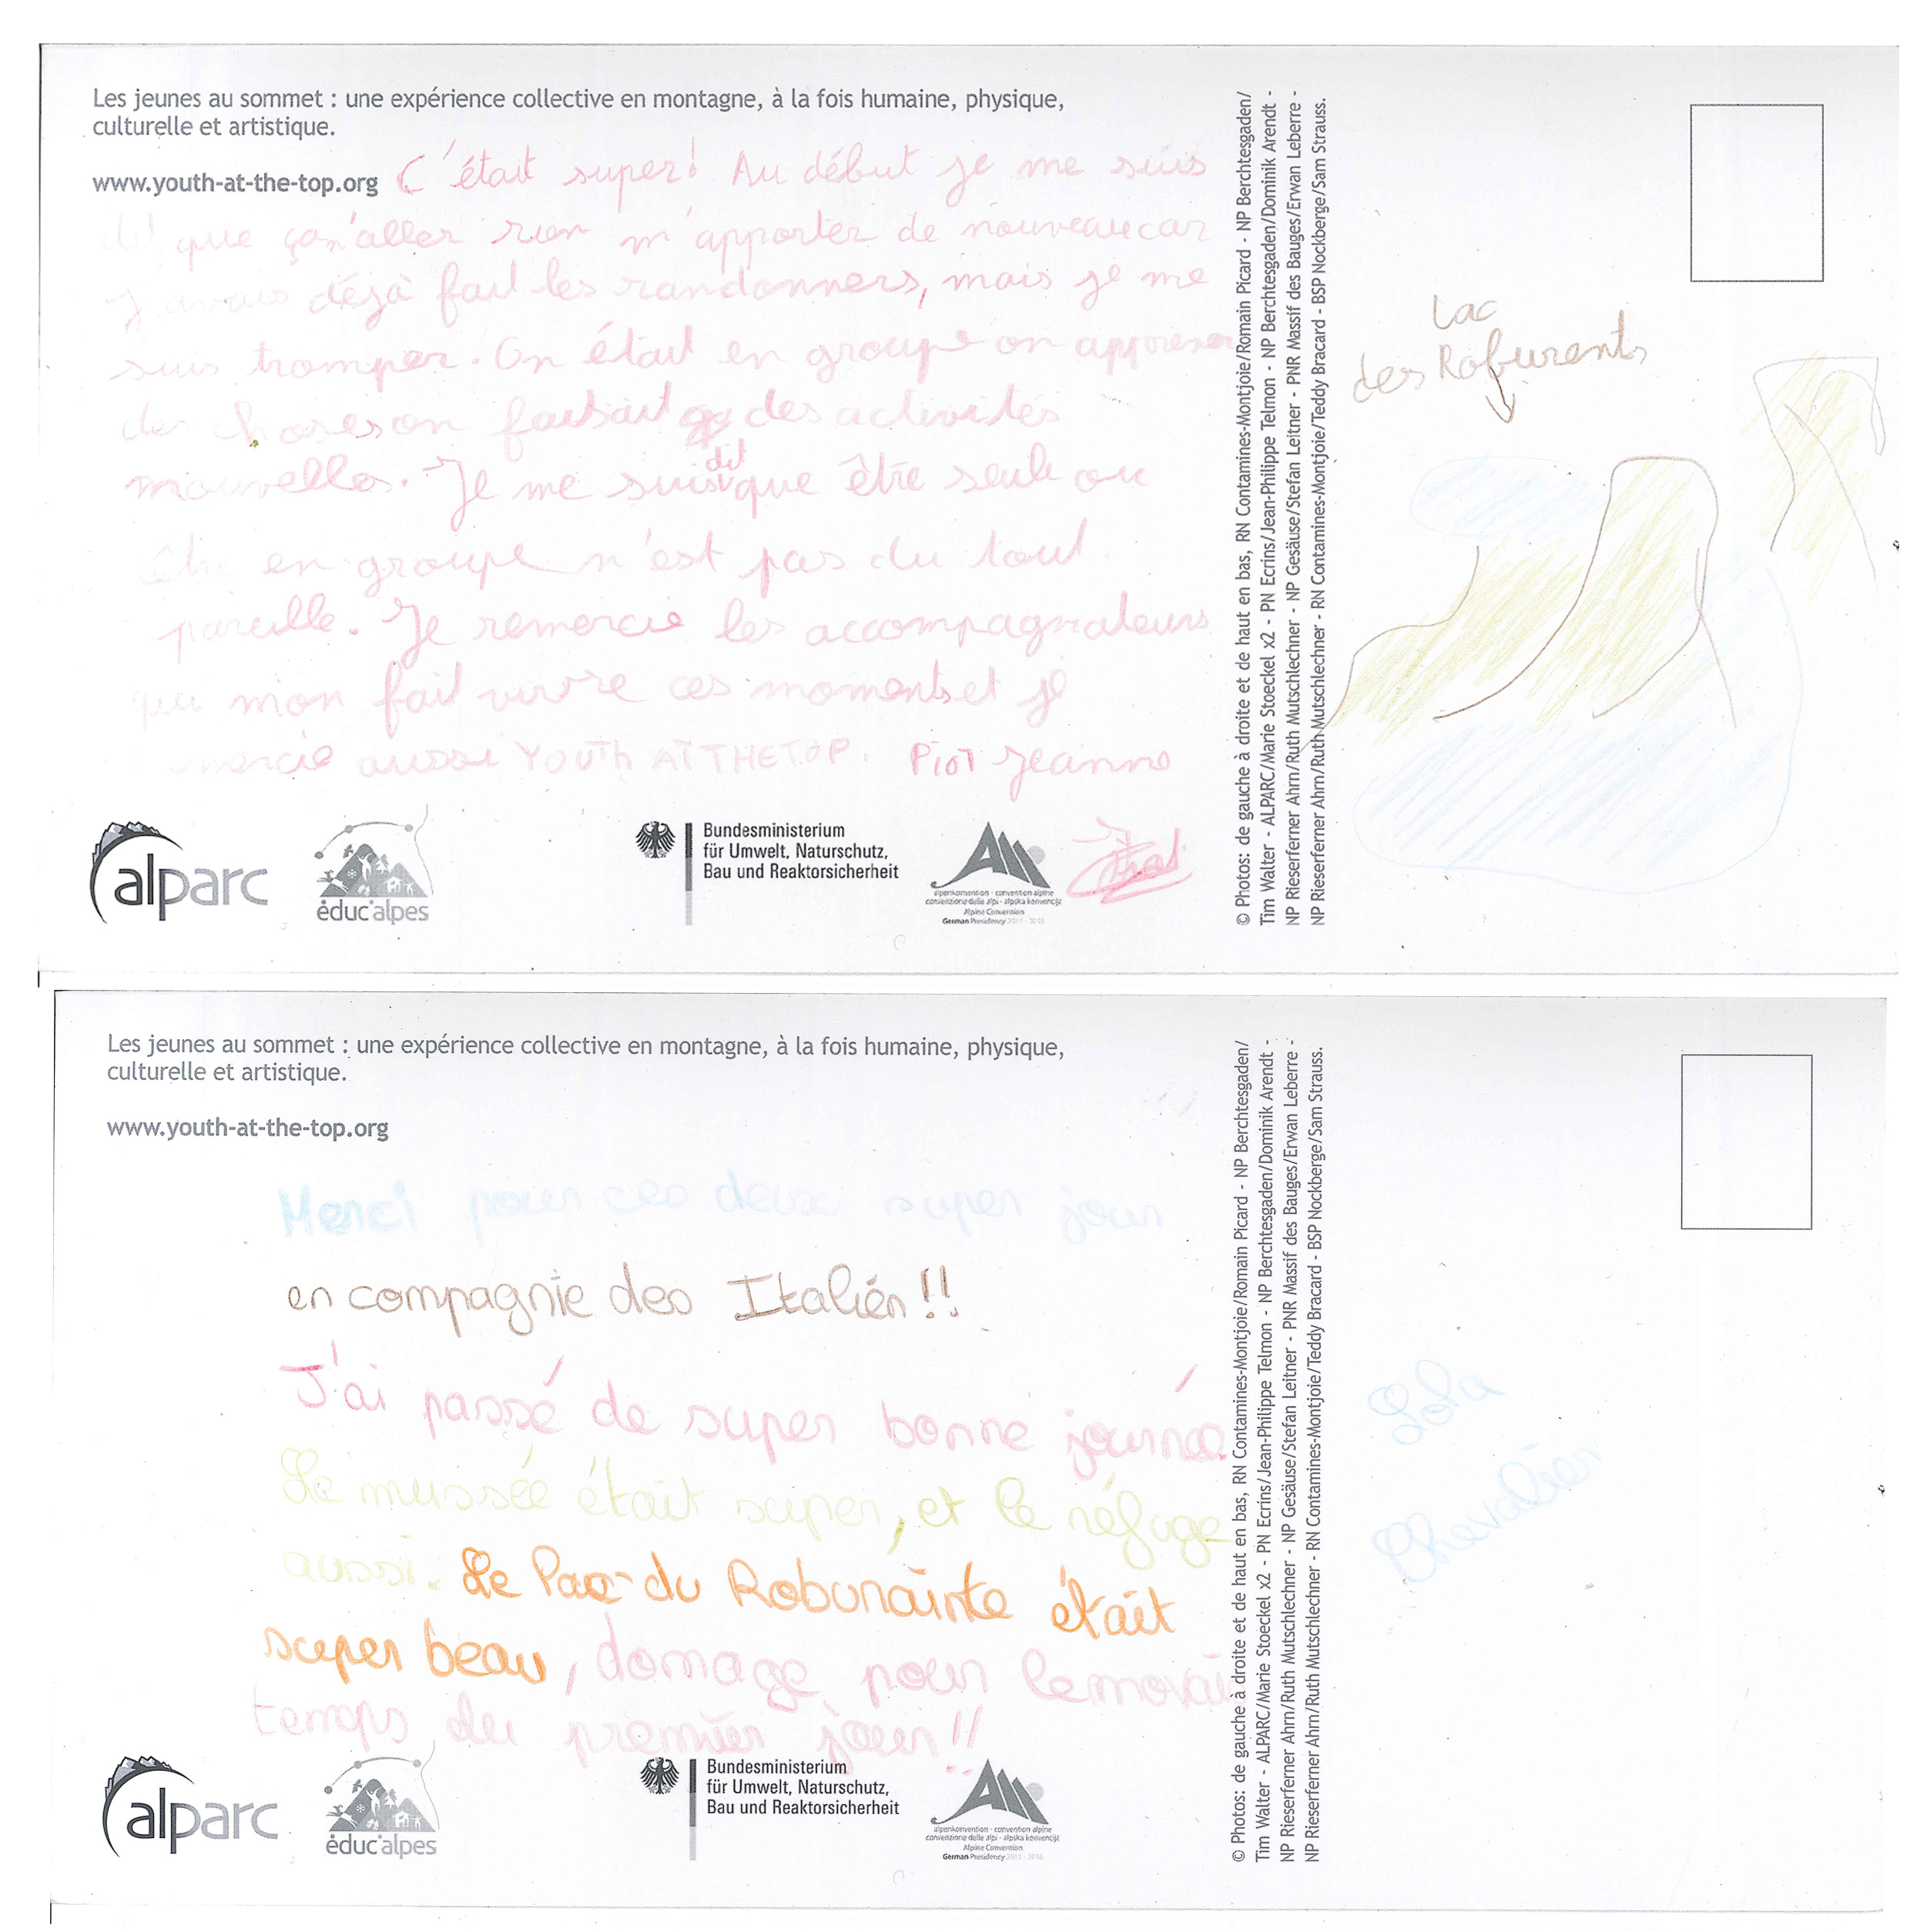 Les jeunes au sommet : une expérience collective en montagne, à la fois humaine, physique,
culturelle et artistique.
www.youth-at-the-top.org
C'était super! Au début je me suis
dit que ça n'aller rien m'apporter de nouveau car
j'avais déjà fait les randonners, mais je me
suis tromper. On était en groupe on apprener
des choses on faisait des activités
nouvelles. Je me suis dit que être seule ou
être en groupe n'est pas du tout
pareille. Je remercie les accompagnateurs
qui mon fait vivre ces moments et je
mercie aussi YOUTH AT THE TOP. PioT Jeanne
alparc
éduc'alpes
Bundesministerium
für Umwelt, Naturschutz,
Bau und Reaktorsicherheit
alpenkonvention · convention alpine
convenzione delle alpi · alpska konvencija
Alpine Convention
German Presidency 2015 - 2016
© Photos: de gauche à droite et de haut en bas, RN Contamines-Montjoie/Romain Picard - NP Berchtesgaden/
Tim Walter - ALPARC/Marie Stoeckel x2 - PN Ecrins/Jean-Philippe Telmon - NP Berchtesgaden/Dominik Arendt -
NP Rieserferner Ahrn/Ruth Mutschlechner - NP Gesäuse/Stefan Leitner - PNR Massif des Bauges/Erwan Leberre -
NP Rieserferner Ahrn/Ruth Mutschlechner - RN Contamines-Montjoie/Teddy Bracard - BSP Nockberge/Sam Strauss.
Lac
des Roburents
Les jeunes au sommet : une expérience collective en montagne, à la fois humaine, physique,
culturelle et artistique.
www.youth-at-the-top.org
Merci pour ces deux super jour
en compagnie des Italién !!
J'ai passé de super bonne journée
Le mussée était super, et le réfuge
aussi. Le lac du Robunainte était
super beau, domage pour le movai
temps du premier jour !!
alparc
éduc'alpes
Bundesministerium
für Umwelt, Naturschutz,
Bau und Reaktorsicherheit
alpenkonvention · convention alpine
convenzione delle alpi · alpska konvencija
Alpine Convention
German Presidency 2015 - 2016
© Photos: de gauche à droite et de haut en bas, RN Contamines-Montjoie/Romain Picard - NP Berchtesgaden/
Tim Walter - ALPARC/Marie Stoeckel x2 - PN Ecrins/Jean-Philippe Telmon - NP Berchtesgaden/Dominik Arendt -
NP Rieserferner Ahrn/Ruth Mutschlechner - NP Gesäuse/Stefan Leitner - PNR Massif des Bauges/Erwan Leberre -
NP Rieserferner Ahrn/Ruth Mutschlechner - RN Contamines-Montjoie/Teddy Bracard - BSP Nockberge/Sam Strauss.
Lola
Chevalier